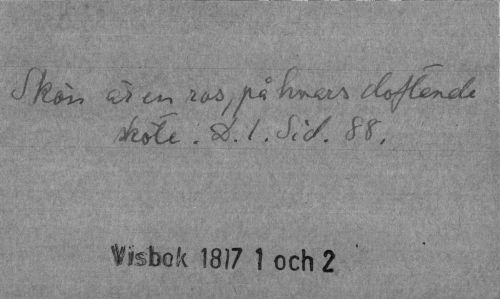 Skön är en ros, på hvars doftende
sköte. D. 1. Sid. 88.
Visbok 1817 1 och 2